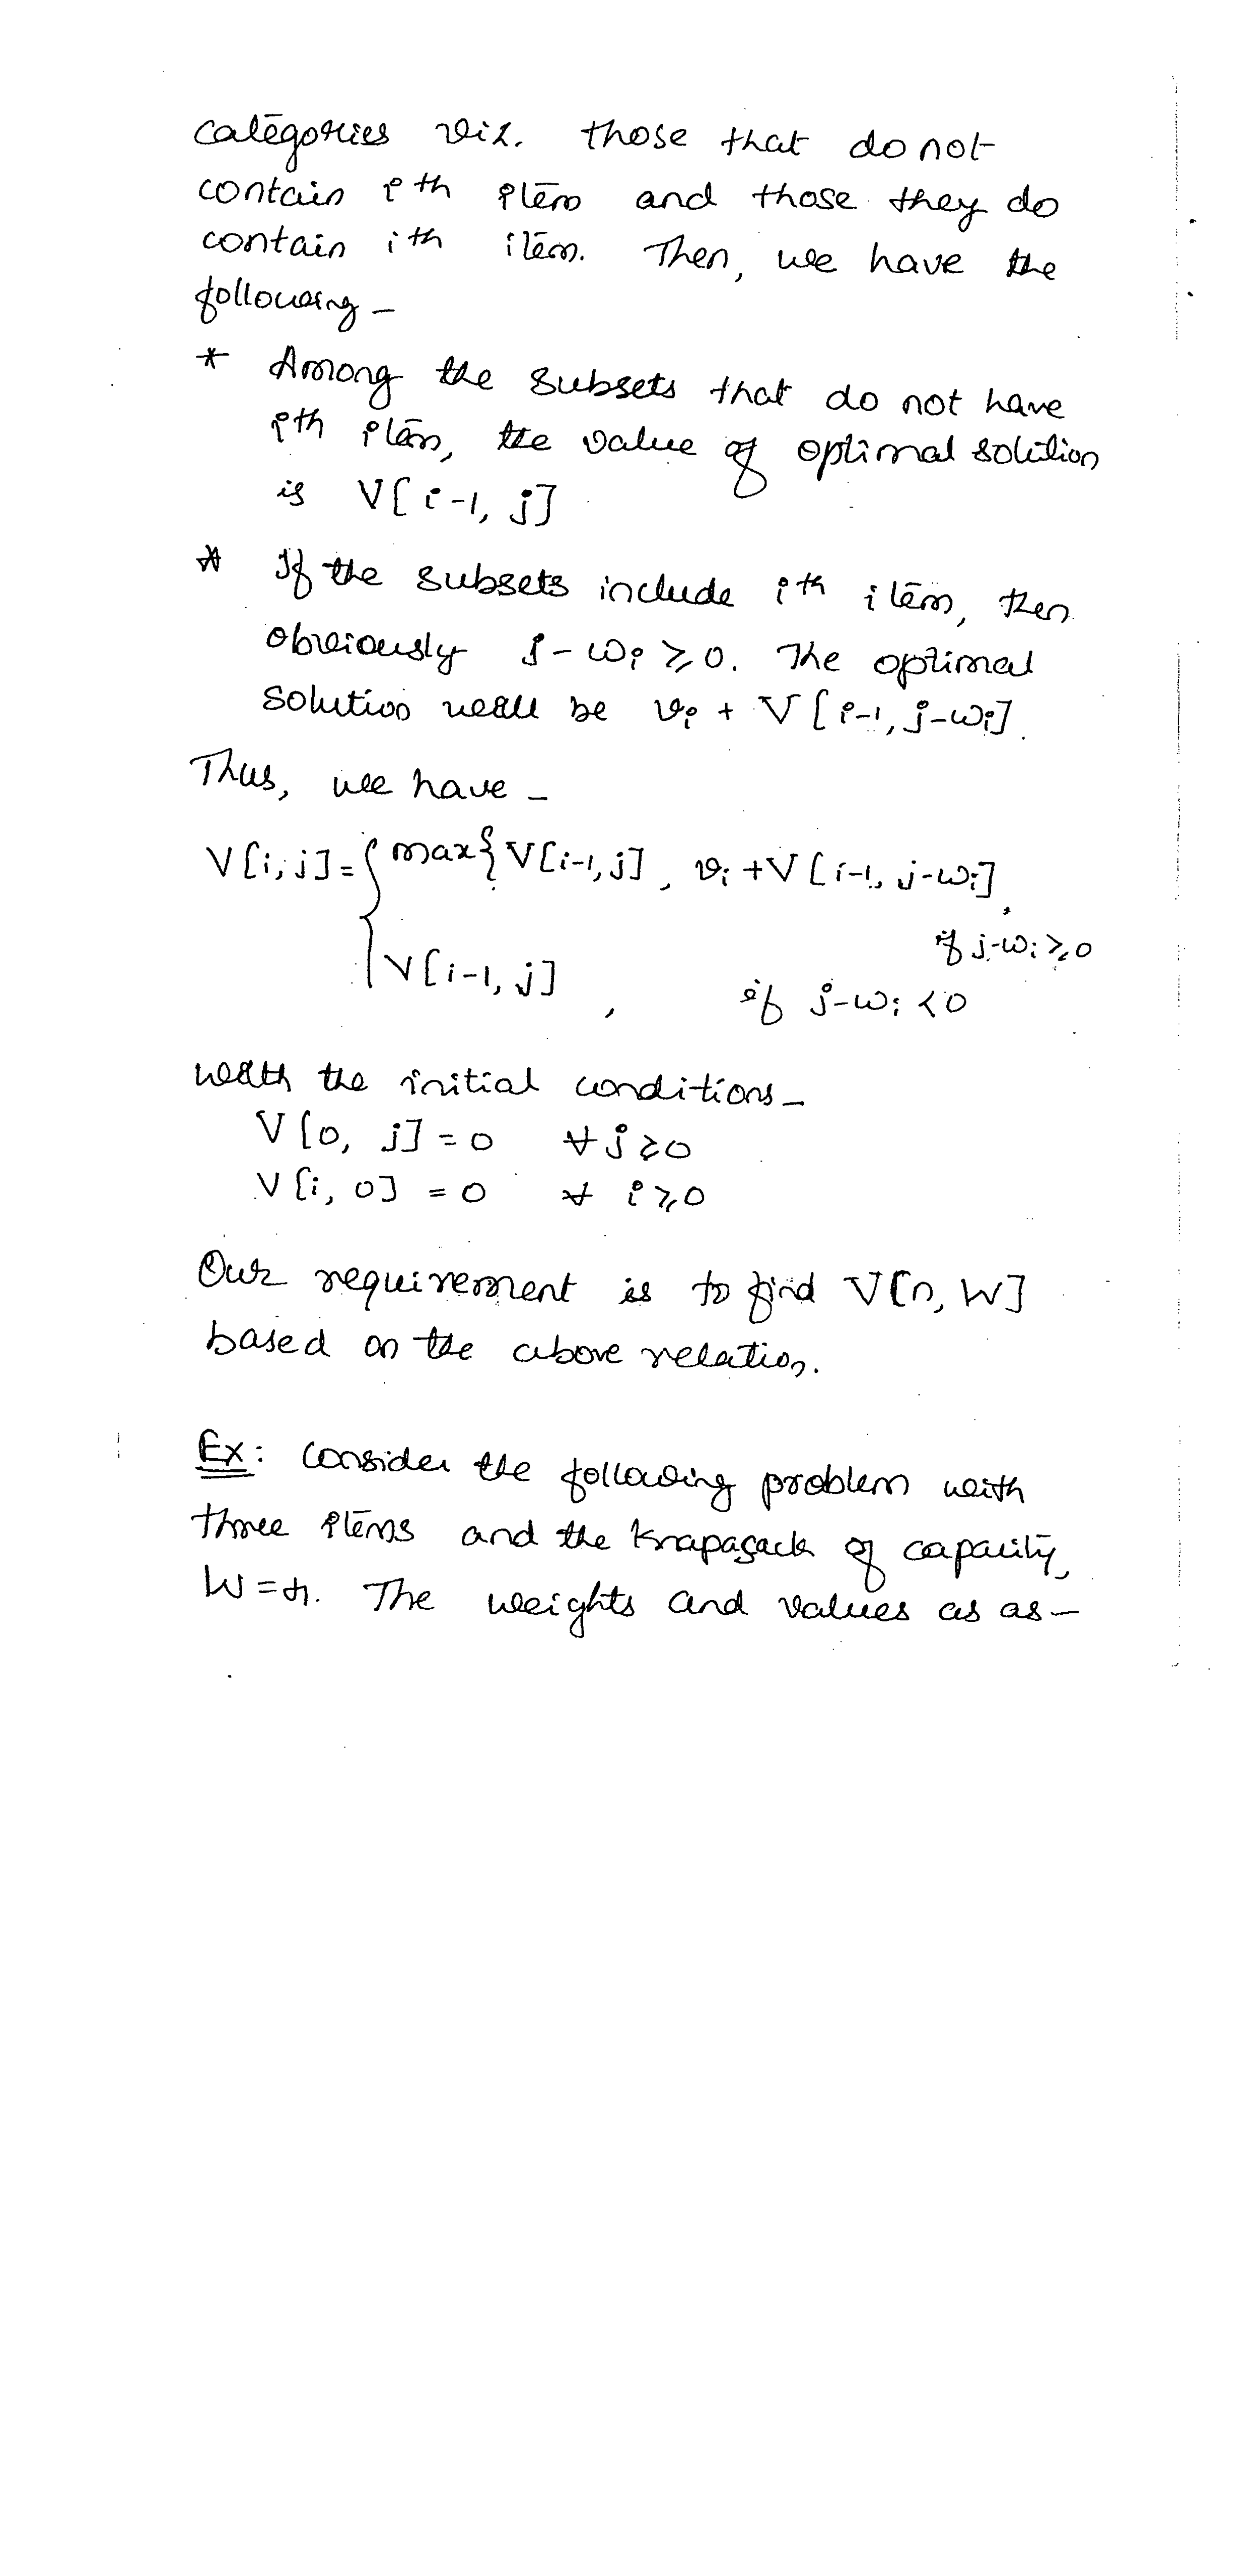 categories viz. those that do not
contain ith item and those they do
contain ith item. Then, we have the
following –
* Among the subsets that do not have
ith item, the value of optimal solution
is V[i-1, j]
* If the subsets include ith item, then
obviously j - wi ≥ 0. The optimal
solution will be vi + V[i-1, j-wi].
Thus, we have –
V[i, j] = { max{ V[i-1, j], vi + V[i-1, j-wi],
if j-wi ≥ 0
V[i-1, j] , if j-wi < 0
with the initial conditions –
V[0, j] = 0 ∀ j ≥ 0
V[i, 0] = 0 ∀ i ≥ 0
Our requirement is to find V[n, W]
based on the above relation.
Ex: Consider the following problem with
three items and the knapasack of capacity,
W = . The weights and values as as –